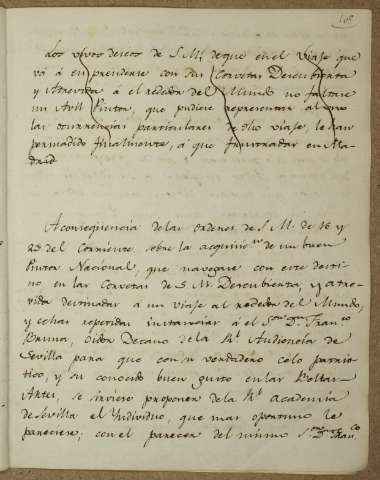 Los vivos deseos de S. M. de que en el Viaje que
vá á emprenderse con sus Corvetas Descubierta
y Atrevida á el rededor del Mundo no faltase
un Avil Pintor, que pudiese representar al vivo
las ocurrencias particulares de dho viaje, le han
persuadido finalmente, á que
A conseqüencia de las ordenes de S. M. de 16 y
23 del Corriente sobre la acquisicⁿ de un buen
Pintor Nacional, que navegase con este desti-
no, en las Corvetas de S. M. Descubierta, y Atre-
vida destinadas á un viaje al rededor del Mundo,
y echas repetidas instancias á el Sᵒʳ Dⁿ Franᶜᵒ
Bruna, Oidor Decano de la Rˡ Audiencia de
Sevilla para que con su verdadero celo patrio-
tico, y su conocido buen gusto en las Bellas
Artes, se sirviese proponer de la Rˡ Academia
de Sevilla el Yndividuo, que mas oportuno le
pareciese; con el parecer del mismo Sᵒʳ Dⁿ Franᶜᵒ